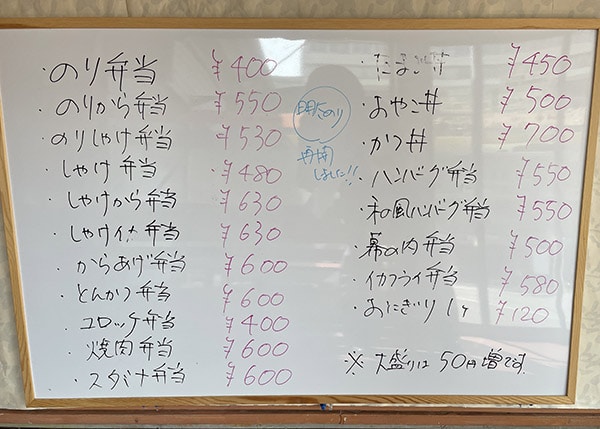 ・のり弁当 ¥400
・のりから弁当 ¥550
・のりしゃけ弁当 ¥530
・しゃけ弁当 ¥480
・しゃけから弁当 ¥630
・しゃけイカ弁当 ¥630
・からあげ弁当 ¥600
・とんかつ弁当 ¥600
・コロッケ弁当 ¥400
・焼肉弁当 ¥600
・スタミナ弁当 ¥600
のり
再開
しました!!
・たまご丼 ¥450
・おやこ丼 ¥500
・かつ丼 ¥700
・ハンバーグ弁当 ¥550
・和風ハンバーグ弁当 ¥550
・幕の内弁当 ¥500
・イカフライ弁当 ¥580
・おにぎり 1ヶ ¥120
※大盛りは50円増です。